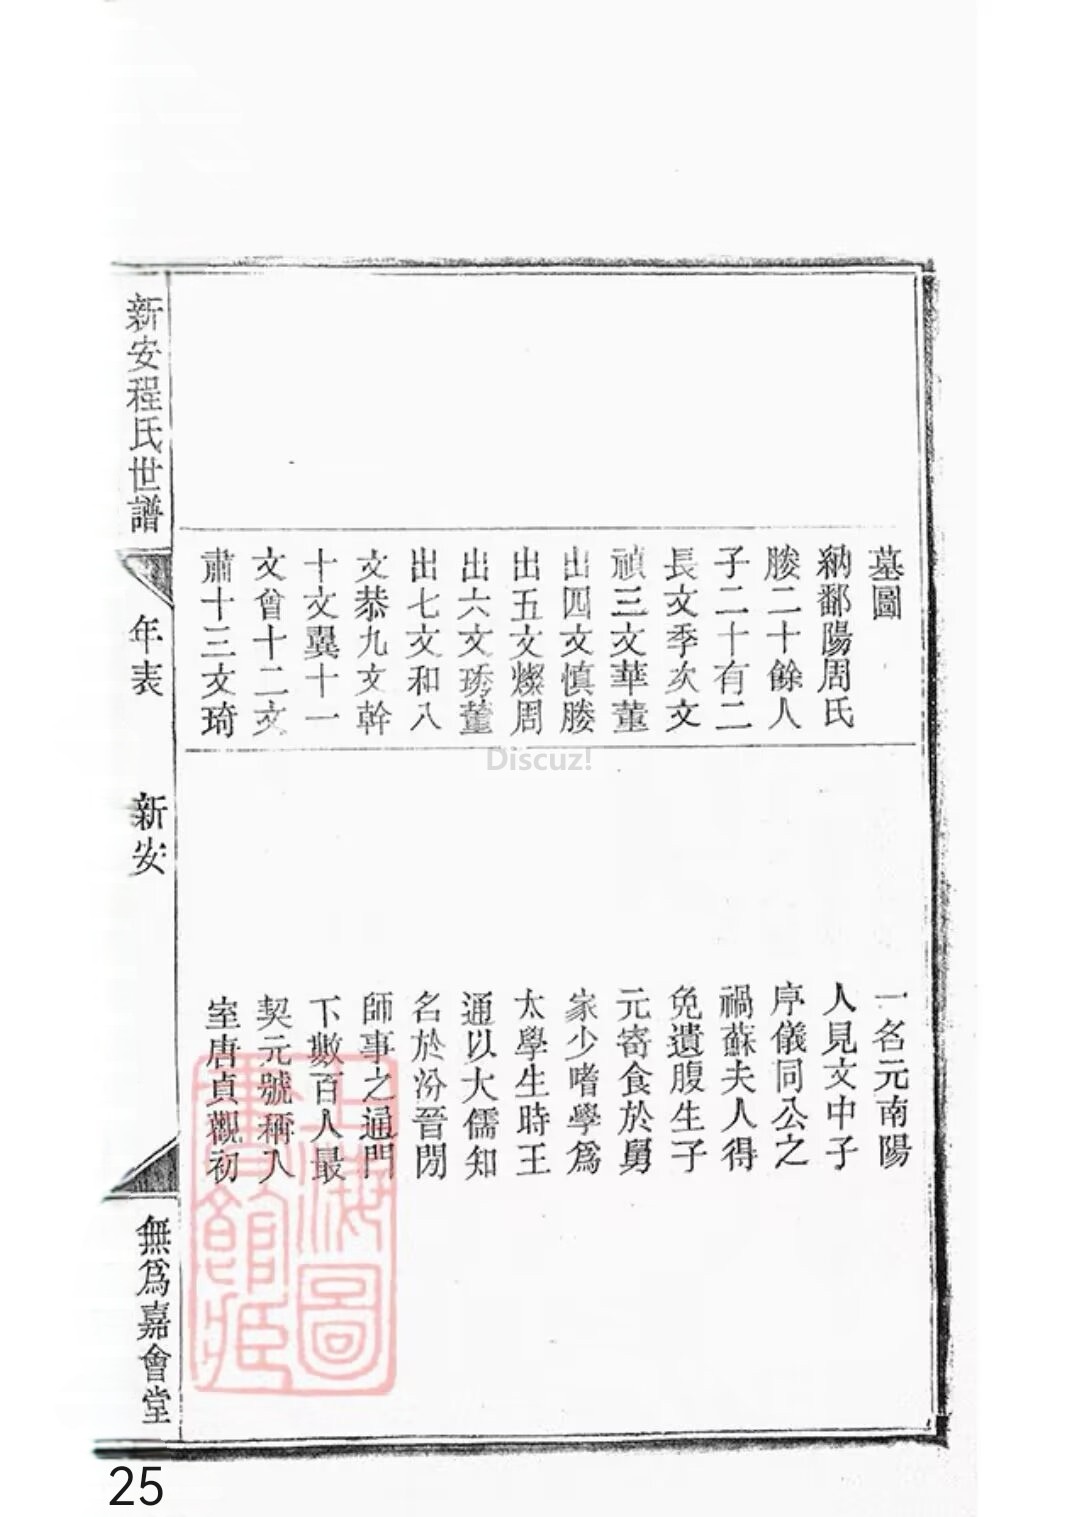 墓圖
納鄱陽周氏
媵二十餘人
子二十有二
長文季次文
禎三文華董
出四文慎媵
出五文燦周
出六文琇董
出七文和八
文恭九文幹
十文翼十一
文曾十二文
肅十三文琦
一名元南陽
人見文中子
序儀同公之
禍蘇夫人得
免遺腹生子
元寄食於舅
家少嗜學為
太學生時王
通以大儒知
名於汾晉閒
師事之通門
下數百人最
契元號稱入
室唐貞觀初
新安程氏世譜
年表
新安
無為嘉會堂
上海圖書館藏
Discuz!
25